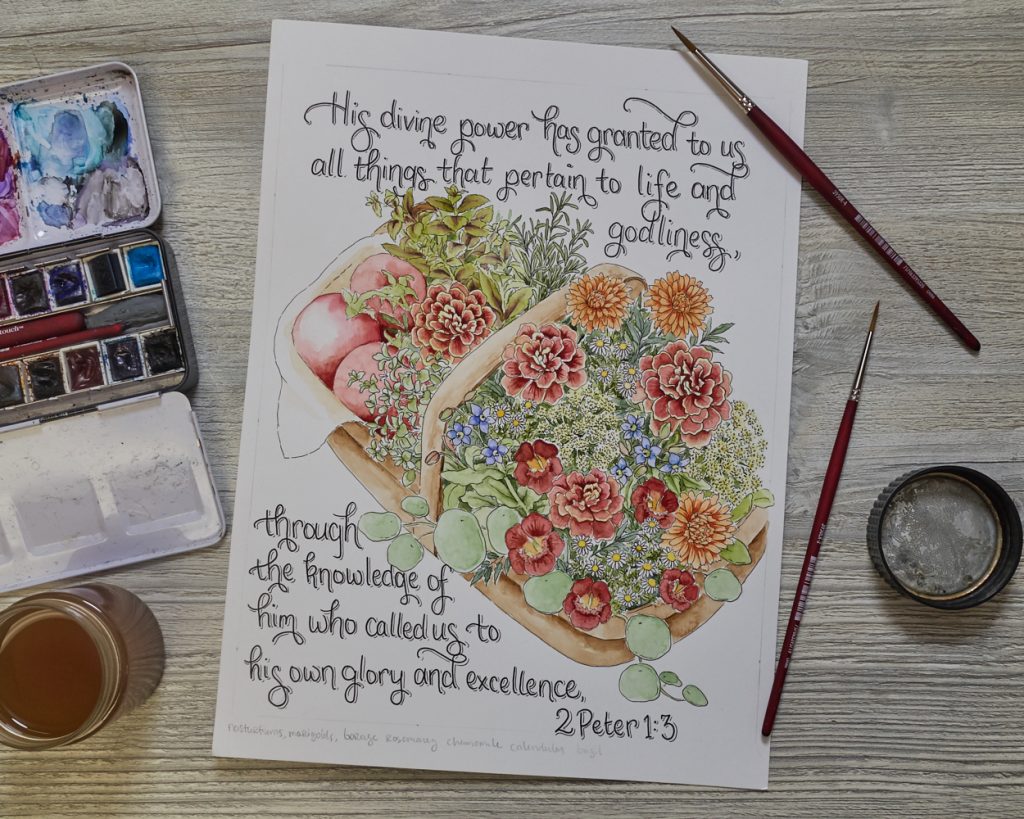 His divine power has granted to us
all things that pertain to life and
godliness,
through
the knowledge of
him who called us to
his own glory and excellence,
2 Peter 1:3
nasturtiums, marigolds, borage rosemary chamomile calendulas basil